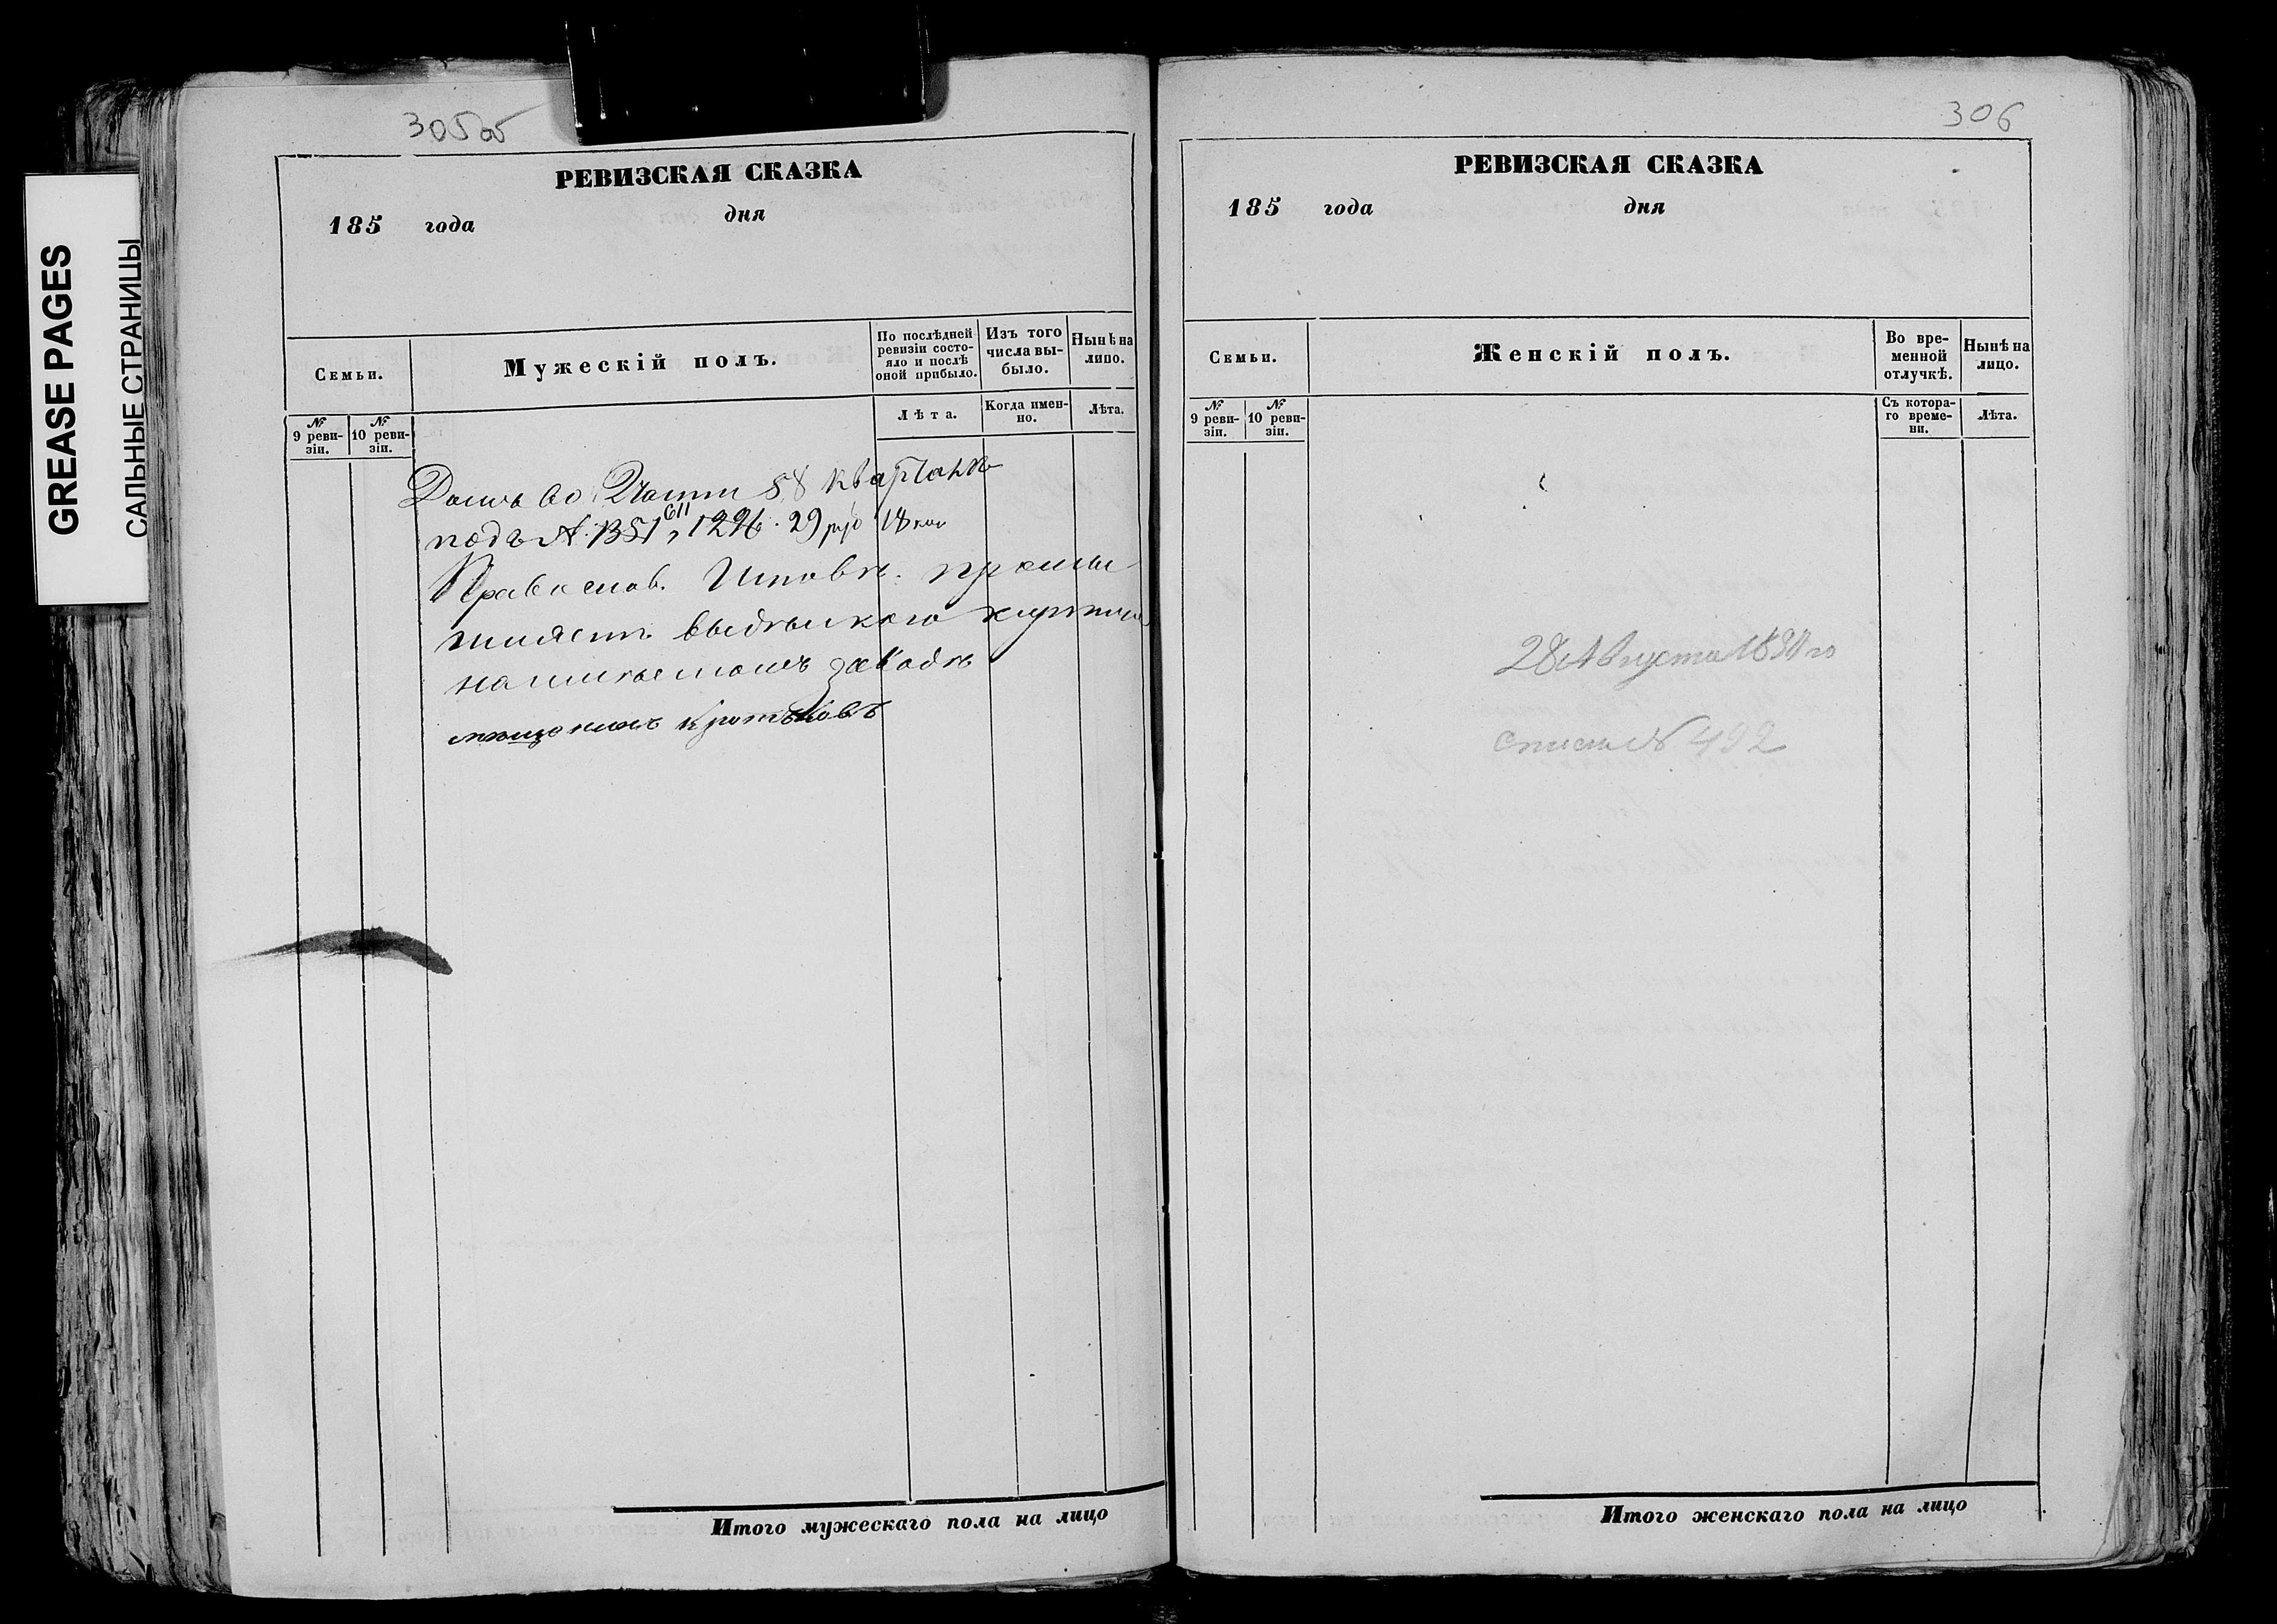 GREASE PAGES
САЛЬНЫЕ СТРАНИЦЫ
305об
РЕВИЗСКАЯ СКАЗКА
185 года дня
Семьи.
Мужескій полъ.
По послѣдней ревизіи состо-
яло и послѣ
оной прибыло.
Изъ того
числа вы-
было.
Нынѣ на
лицо.
№
9 реви-
зіи.
№
10 реви-
зіи.
Лѣта.
Когда имен-
но.
Лѣта.
Домъ во 2 части 58 квартала
подъ № 1351, 611 1226. 29 руб 18 коп
Православ. Исповѣ.
выдѣлкою
заводѣ
мѣщанинъ Кротковъ
Итого мужескаго пола на лицо
306
РЕВИЗСКАЯ СКАЗКА
185 года дня
Семьи.
Женскій полъ.
Во вре-
менной
отлучкѣ.
Нынѣ на
лицо.
№
9 реви-
зіи.
№
10 реви-
зіи.
Съ котора-
го време-
ни.
Лѣта.
28 Августа
№ 492
Итого женскаго пола на лицо